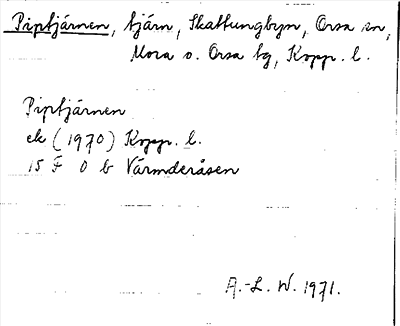 Piptjärnen, tjärn, Skattungbyn, Orsa sn,
Mora o. Orsa tg, Kopp. l.
Piptjärnen
ek (1970) Kopp. l.
15 F 0 b Värmderåsen
A.-L. W. 1971.